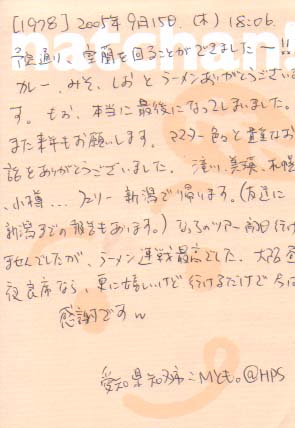 [1978] 2005年9月15日 (木) 18:06.
hatchan!
予定通り、室蘭を回ることができましたー!!
カレー、みそ、しおとラーメンありがとうございま
す。もお、本当に最後になってしまいました。
また来年もお願いします。マスター色々と貴重なお
話をありがとうございました。滝川、美瑛、札幌
、小樽…フェリー新潟で帰ります。(友達に
新潟までの報告もあります。) のツアー 行け
ませんでしたが、ラーメン連戦最高でした。大阪
夜良席なら、更に嬉しいけど行けるだけで
感謝です w
愛知県知多市 こMとも。@HPS